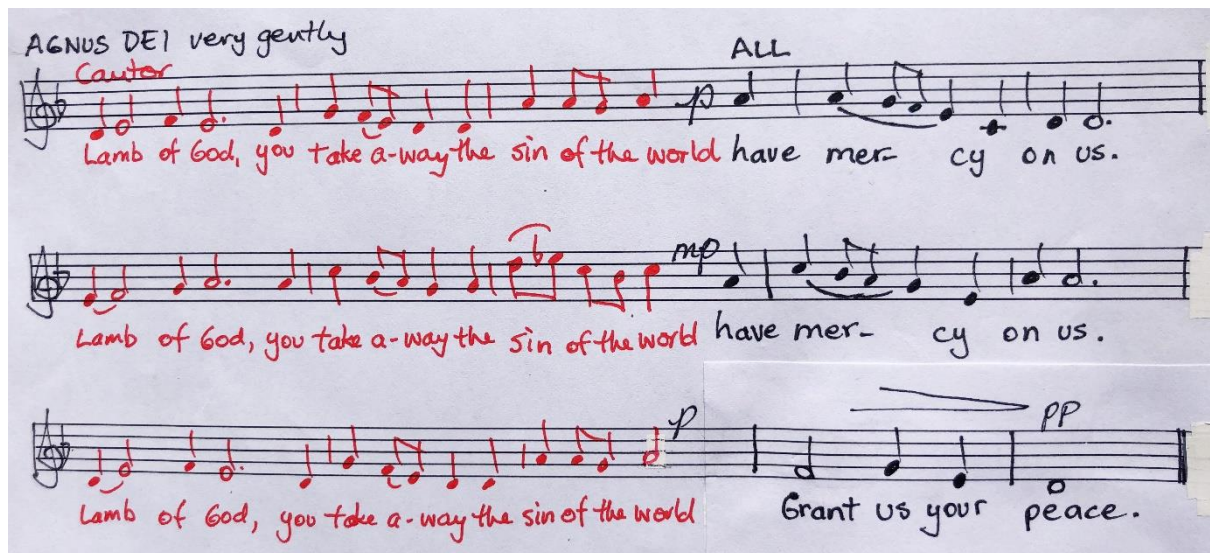 AGNUS DEI very gently
ALL
Cantor
p
Lamb of God, you take a-way the sin of the world have mer- cy on us.
mp
Lamb of God, you take a-way the sin of the world have mer- cy on us.
p pp
Lamb of God, you take a-way the sin of the world Grant us your peace.